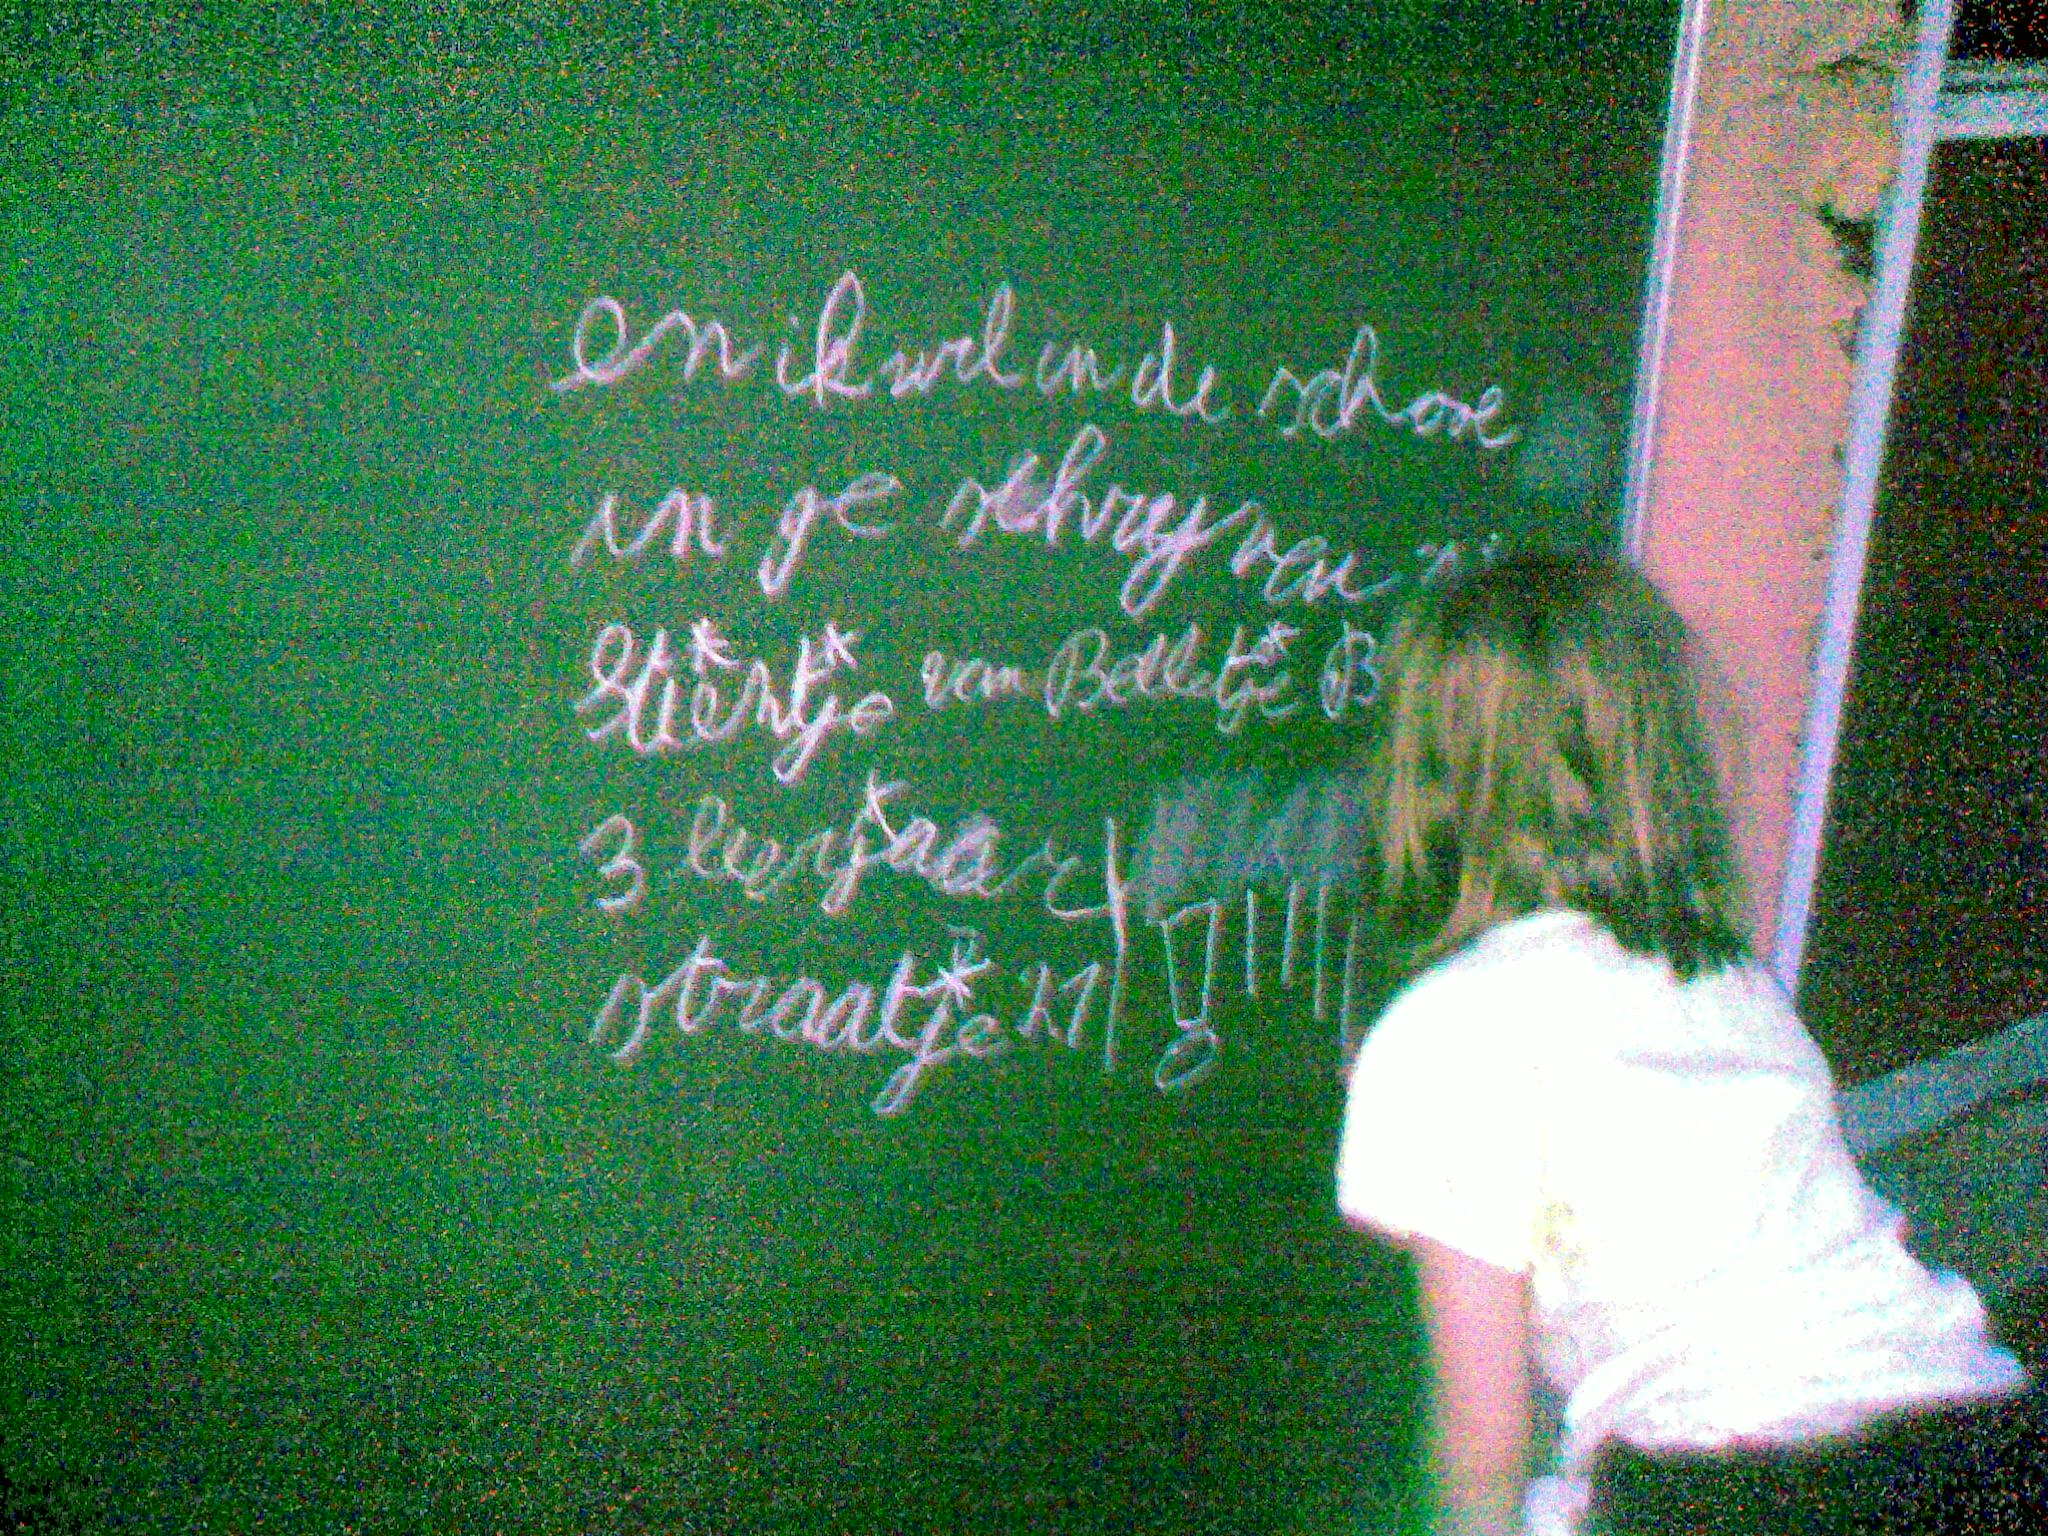 en ik wil in de schone
in ge schryven
Stiertje van Belletje B
3 leerjaar
straatje 21